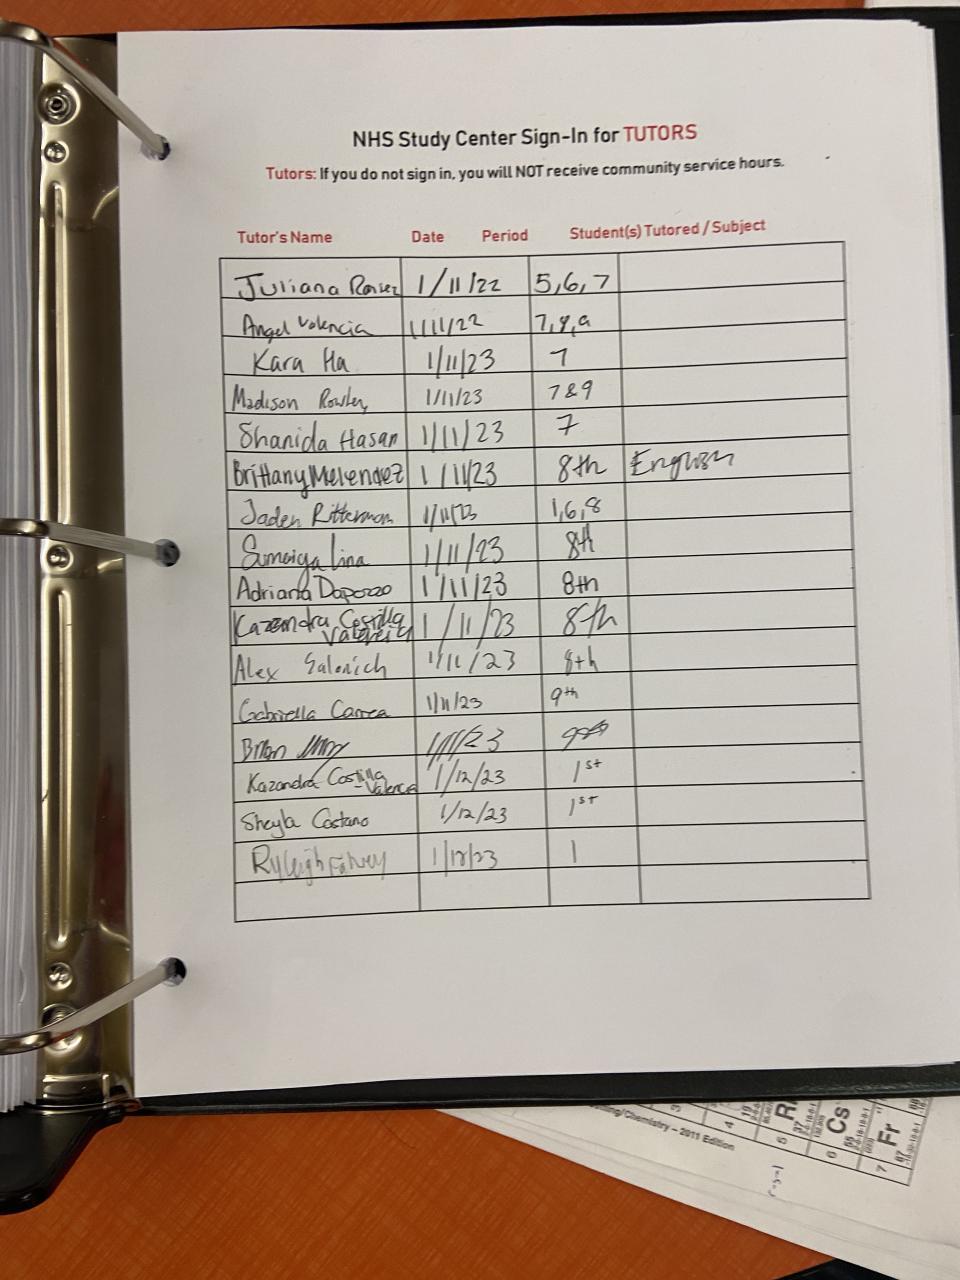 NHS Study Center Sign-In for TUTORS
Tutors: If you do not sign in, you will NOT receive community service hours.
Tutor's Name Date Period Student(s) Tutored / Subject
Juliana 1/11/22 5,6,7
Angel Valencia 1/11/22 7,8,9
Kara Ha 1/11/23 7
Madison Rowley 1/11/23 7&9
Shanida Hasan 1/11/23 7
Brittany Melendez 1/11/23 8th English
Jaden Ritterman 1/11/23 1,6,8
Sumaiya Lina 1/11/23 8th
Adriana Dapozzo 1/11/23 8th
Kazandra Costilla Valencia 1/11/23 8th
Alex Galanich 1/11/23 8th
Gabriella Correa 1/11/23 9th
Brian 1/11/23
Kazandra Costilla Valencia 1/12/23 1st
Sheyla Castano 1/12/23 1st
Ryleigh 1/12/23 1
Chemistry – 2011 Edition
4
5
6 Cs
7 Fr